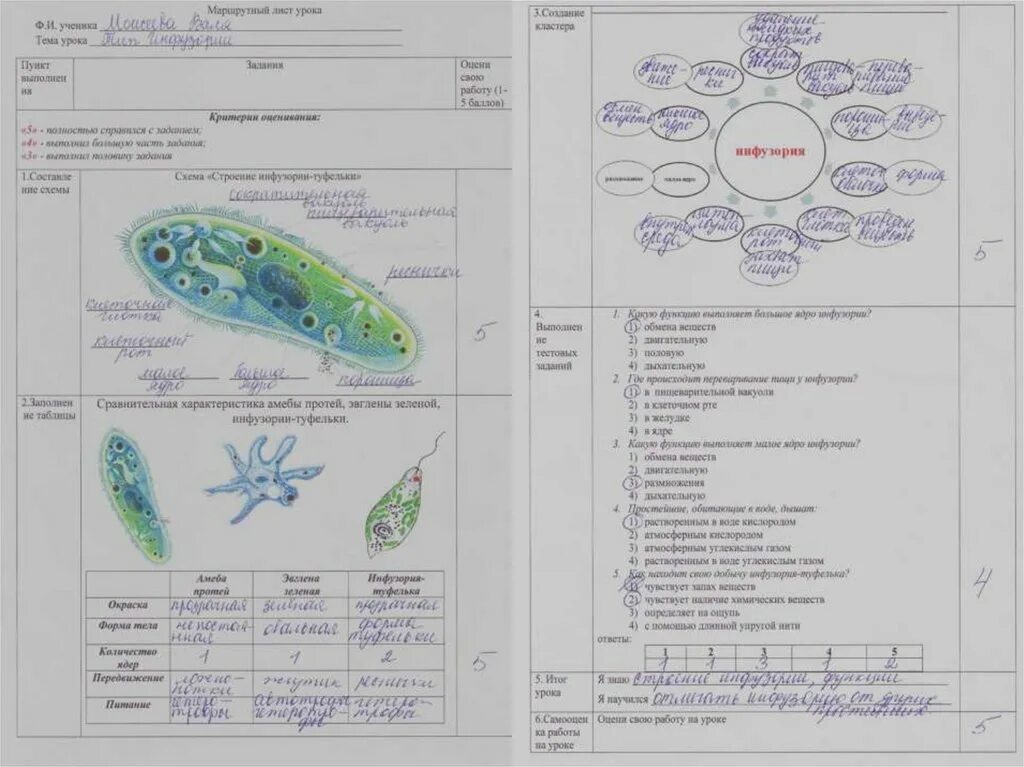 Маршрутный лист урока
Ф.И. ученика Моисеева Валя
Тема урока Тип инфузории
Пункт выполнения
Задания
Оцени свою работу (1-5 баллов)
Критерии оценивания:
«5» - полностью справился с заданием;
«4» - выполнил большую часть задания;
«3» - выполнил половину задания
1.Составление схемы
Схема «Строение инфузории-туфельки»
сократительная
вакуоль
пищеварительная
вакуоль
реснички
клеточная
глотка
клеточный
рот
малое
ядро
большое
ядро
порошица
5
2.Заполнение таблицы
Сравнительная характеристика амебы протей, эвглены зеленой,
инфузории-туфельки.
Амеба протей
Эвглена зеленая
Инфузория-туфелька
Окраска
прозрачная
зелёная
прозрачная
Форма тела
непостоянная
овальная
форма туфельки
Количество ядер
1
1
2
Передвижение
ложноножки
жгутик
реснички
Питание
гетеротрофы
автотрофы гетеротрофы
гетеротрофы
5
3.Создание кластера
продуктов
реснички
обмен веществ
большое ядро
порошица
инфузория
размножение
малое ядро
форма
внутрен среда
цитоплазма
клеточный рот
захват пищи
5
4.
Выполнение тестовых заданий
1. Какую функцию выполняет большое ядро инфузории?
1) обмена веществ
2) двигательную
3) половую
4) дыхательную
2. Где происходит переваривание пищи у инфузории?
1) в пищеварительной вакуоли
2) в клеточном рте
3) в желудке
4) в ядре
3. Какую функцию выполняет малое ядро инфузории?
1) обмена веществ
2) двигательную
3) размножения
4) дыхательную
4. Простейшие, обитающие в воде, дышат:
1) растворенным в воде кислородом
2) атмосферным кислородом
3) атмосферным углекислым газом
4) растворенным в воде углекислым газом
5. Как находит свою добычу инфузория-туфелька?
1) чувствует запах веществ
2) чувствует наличие химических веществ
3) определяет на ощупь
4) с помощью длинной упругой нити
ответы:
1 2 3 4 5
1 1 3 1 2
4
5. Итог урока
Я знаю строение инфузории, функции
Я научился отличать инфузорию от других
простейших
6.Самооценка работы на уроке
Оцени свою работу на уроке
5